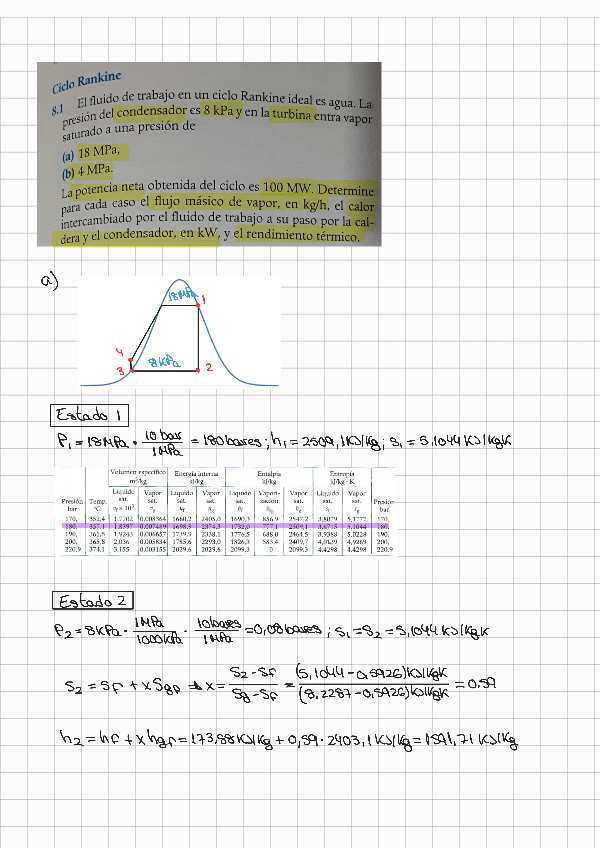 Ciclo Rankine
8.1 El fluido de trabajo en un ciclo Rankine ideal es agua. La
presión del condensador es 8 kPa y en la turbina entra vapor
saturado a una presión de
(a) 18 MPa.
(b) 4 MPa.
La potencia neta obtenida del ciclo es 100 MW. Determine
para cada caso el flujo másico de vapor, en kg/h, el calor
intercambiado por el fluido de trabajo a su paso por la cal-
dera y el condensador, en kW, y el rendimiento térmico.
a)
18 MPa
1
4
8 kPa
3
2
Estado 1
P₁ = 18 MPa · 10 bar / 1 MPa = 180 bares ; h₁ = 2509,1 KJ/kg ; s₁ = 5,1044 KJ/kgK
Volumen específico m³/kg Energía interna kJ/kg Entalpía kJ/kg Entropía kJ/kg · K
Presión bar Temp. °C Líquido sat. vf × 10³ Vapor sat. vg Líquido sat. uf Vapor sat. ug Líquido sat. Vapori- zación Vapor sat. Líquido sat. sf Vapor sat. sg Presión bar
170, 352,4 1.7702 0,008364 1660,2 2405,0 1690,3 856,9 2547,2 3,8079 5,1777 170,
180, 357,1 1.8397 0,007489 1698,9 2374,3 1732,0 777,1 2509,1 3,8715 5,1044 180,
190, 361,5 1.9243 0,006657 1739,9 2338,1 1776,5 688,0 2464,5 3,9388 5,0228 190,
200, 365,8 2,036 0,005834 1785,6 2293,0 1826,3 583,4 2409,7 4,0139 4,9269 200,
220.9 374,1 3.155 0,003155 2029.6 2029.6 2099.3 0 2099.3 4.4298 4.4298 220.9
Estado 2
P₂ = 8 kPa · 1 MPa / 1000 kPa · 10 bares / 1 MPa = 0,08 bares ; s₁ = s₂ = 5,1044 KJ/kgK
s₂ = sf + x sgf → x = s₂ - sf / sg - sf = (5,1044 - 0,5926) KJ/kgK / (8,2287 - 0,5926) KJ/kgK = 0,59
h₂ = hf + x hgf = 173,88 KJ/kg + 0,59 · 2403,1 KJ/kg = 1591,71 KJ/kg